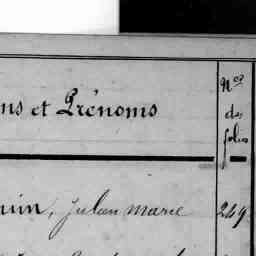 ns et Prénoms
Nos
des
folios
uin, Julien Marie 249